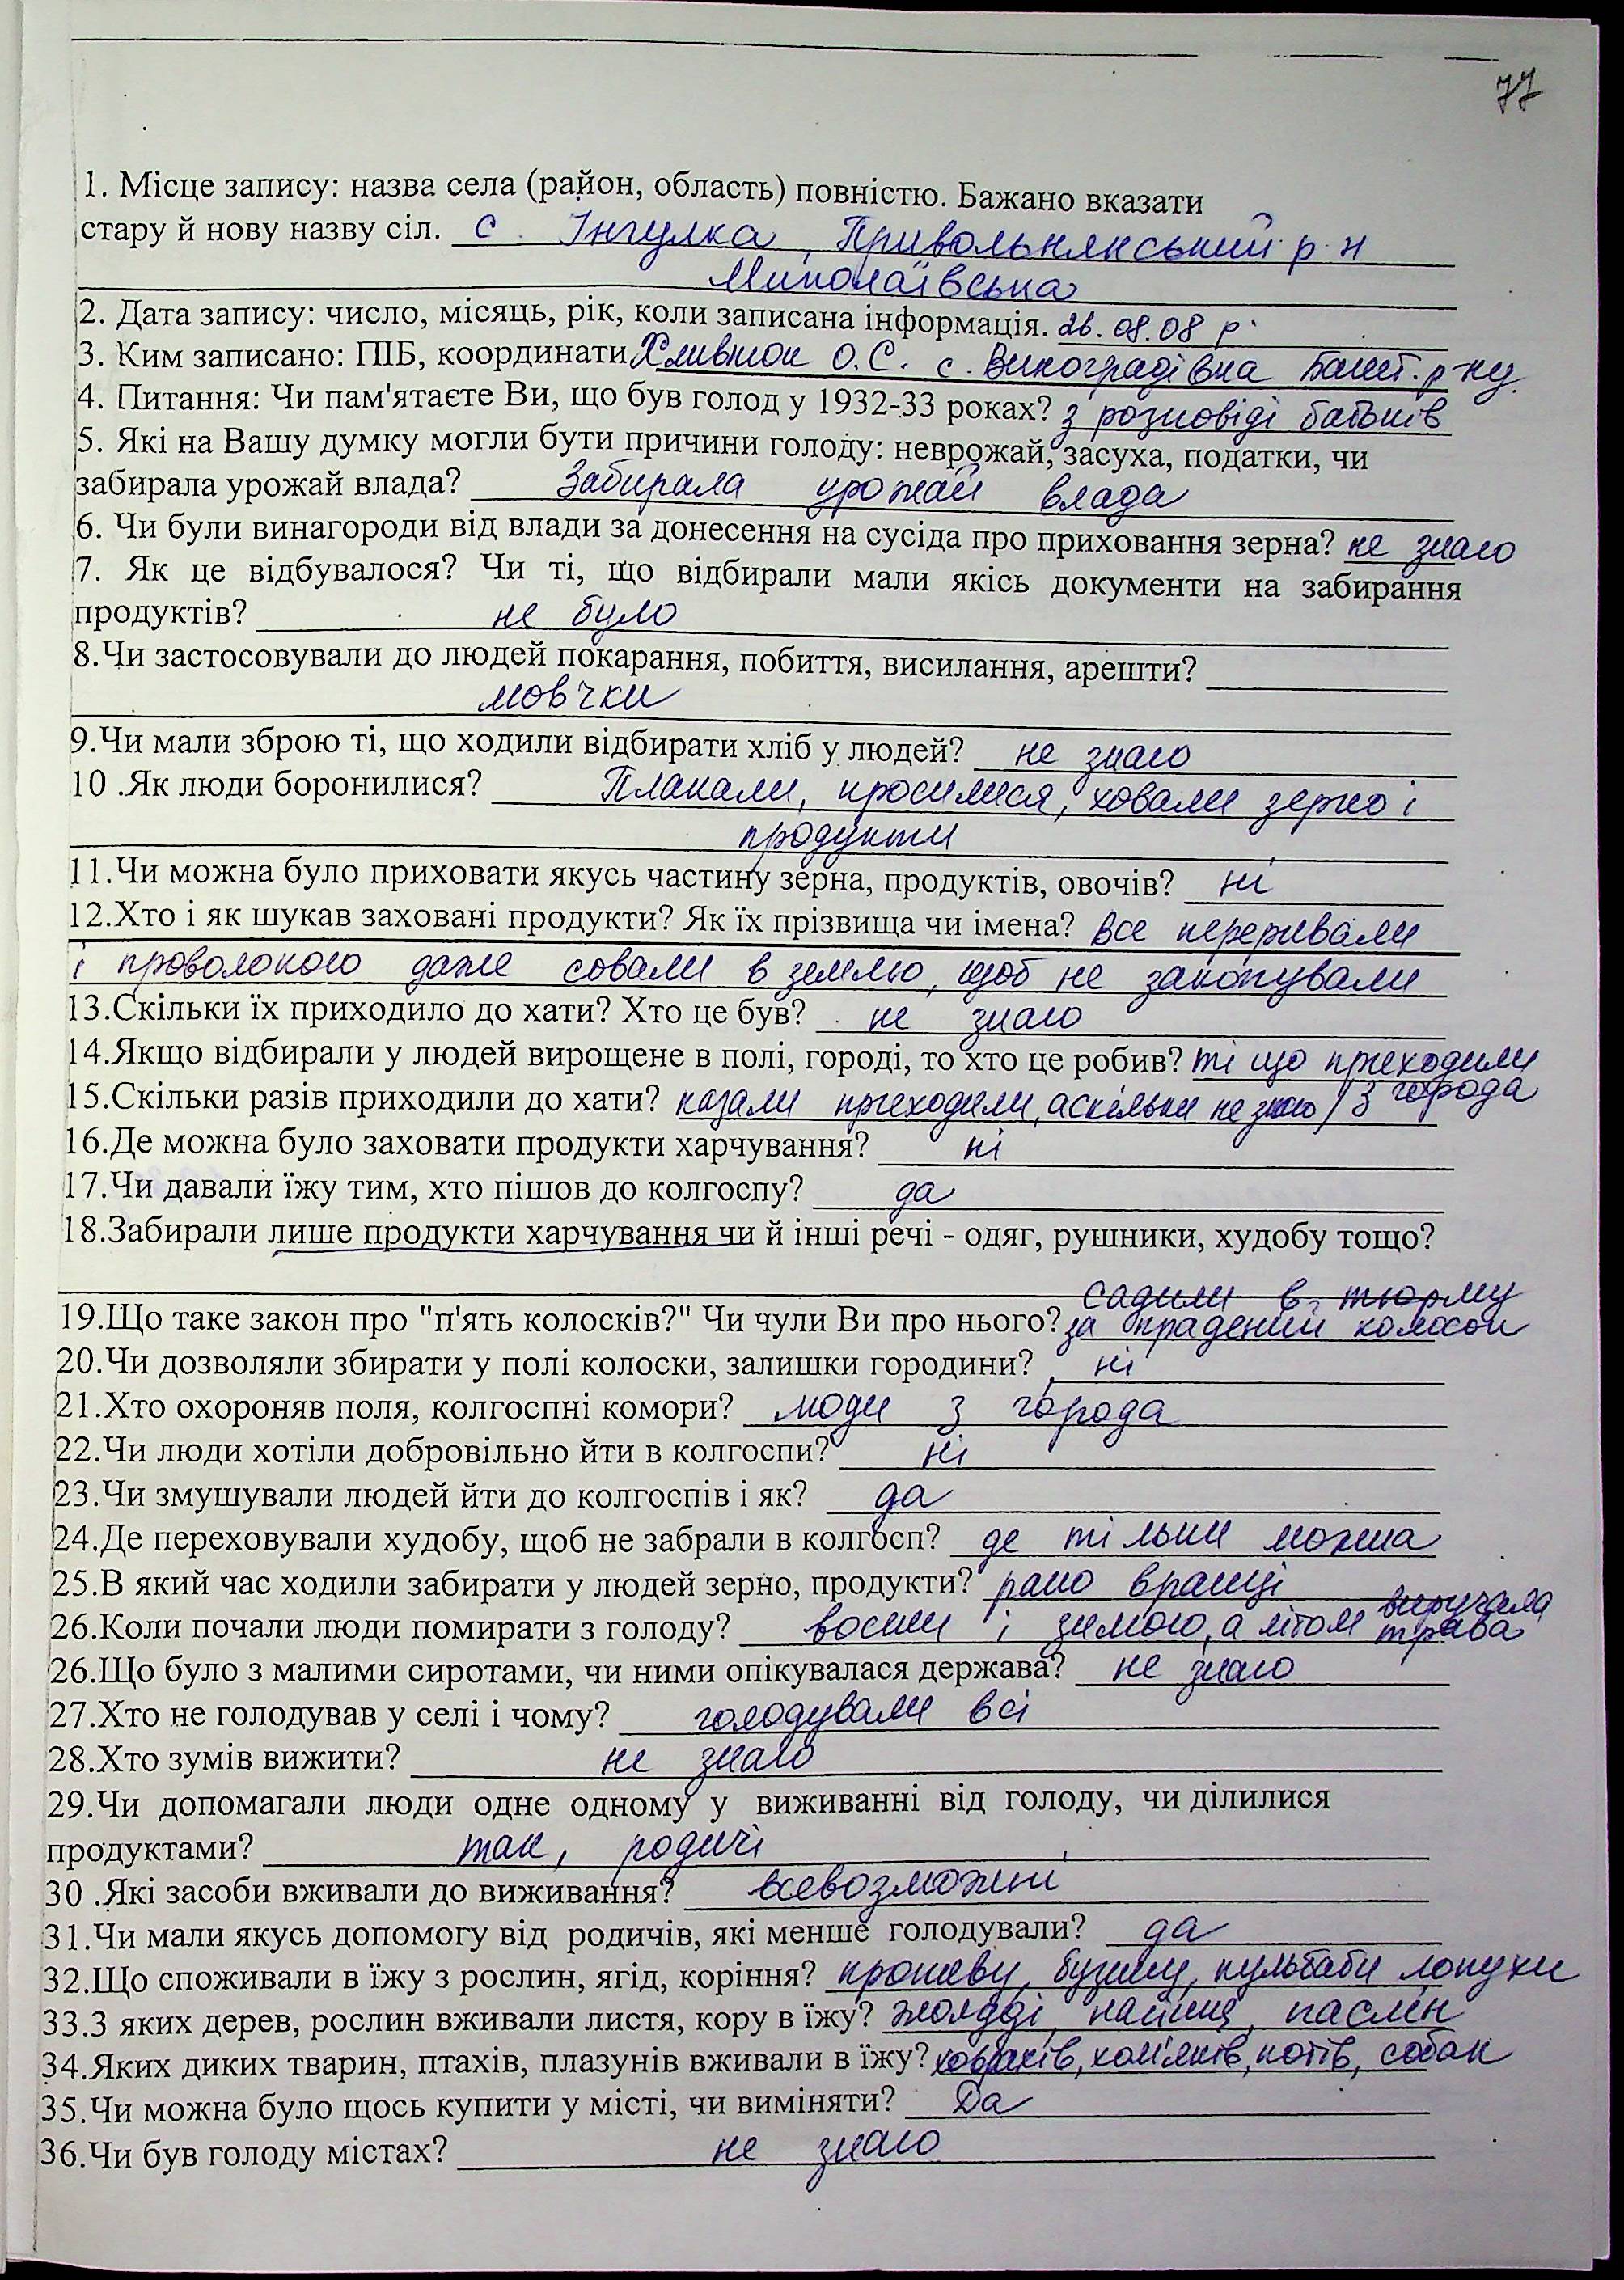 77
1. Місце запису: назва села (район, область) повністю. Бажано вказати
стару й нову назву сіл. с. Інгулка, Привольнянський р-н
Миколаївська
2. Дата запису: число, місяць, рік, коли записана інформація. 26.08.08 р.
3. Ким записано: ПІБ, координати О.С. с. Виноградівка Башт. р-ну.
4. Питання: Чи пам'ятаєте Ви, що був голод у 1932-33 роках? з розповіді батьків
5. Які на Вашу думку могли бути причини голоду: неврожай, засуха, податки, чи
забирала урожай влада? Забирала урожай влада
6. Чи були винагороди від влади за донесення на сусіда про приховання зерна? не знаю
7. Як це відбувалося? Чи ті, що відбирали мали якісь документи на забирання
продуктів? не було
8.Чи застосовували до людей покарання, побиття, висилання, арешти?
мовчки
9.Чи мали зброю ті, що ходили відбирати хліб у людей? не знаю
10 .Як люди боронилися? Плакали, просилися, ховали зерно і
продукти
11.Чи можна було приховати якусь частину зерна, продуктів, овочів? ні
12.Хто і як шукав заховані продукти? Як їх прізвища чи імена? все перерывали
і проволокою даже совали в землю, щоб не закопували
13.Скільки їх приходило до хати? Хто це був? не знаю
14.Якщо відбирали у людей вирощене в полі, городі, то хто це робив? ті що приходили
з города
15.Скільки разів приходили до хати? казали приходили, а скільки не знаю
16.Де можна було заховати продукти харчування? ні
17.Чи давали їжу тим, хто пішов до колгоспу? да
18.Забирали лише продукти харчування чи й інші речі - одяг, рушники, худобу тощо?
садили в тюрму
19.Що таке закон про "п'ять колосків?" Чи чули Ви про нього? за крадений колосок
20.Чи дозволяли збирати у полі колоски, залишки городини? ні
21.Хто охороняв поля, колгоспні комори? люди з города
22.Чи люди хотіли добровільно йти в колгоспи? ні
23.Чи змушували людей йти до колгоспів і як? да
24.Де переховували худобу, щоб не забрали в колгосп? де тільки можна
25.В який час ходили забирати у людей зерно, продукти? рано вранці
26.Коли почали люди помирати з голоду? восени і зимою, а літом виручала
трава
26.Що було з малими сиротами, чи ними опікувалася держава? не знаю
27.Хто не голодував у селі і чому? голодували всі
28.Хто зумів вижити? не знаю
29.Чи допомагали люди одне одному у виживанні від голоду, чи ділилися
продуктами? так, родичі
30 .Які засоби вживали до виживання? всевозможні
31.Чи мали якусь допомогу від родичів, які менше голодували? да
32.Що споживали в їжу з рослин, ягід, коріння? кропиву, бузину, кульбаби лопухи
33.З яких дерев, рослин вживали листя, кору в їжу? жолуді, паслін
34.Яких диких тварин, птахів, плазунів вживали в їжу? ховрахів, хом'яків, котів, собак
35.Чи можна було щось купити у місті, чи виміняти? Да
36.Чи був голоду містах? не знаю